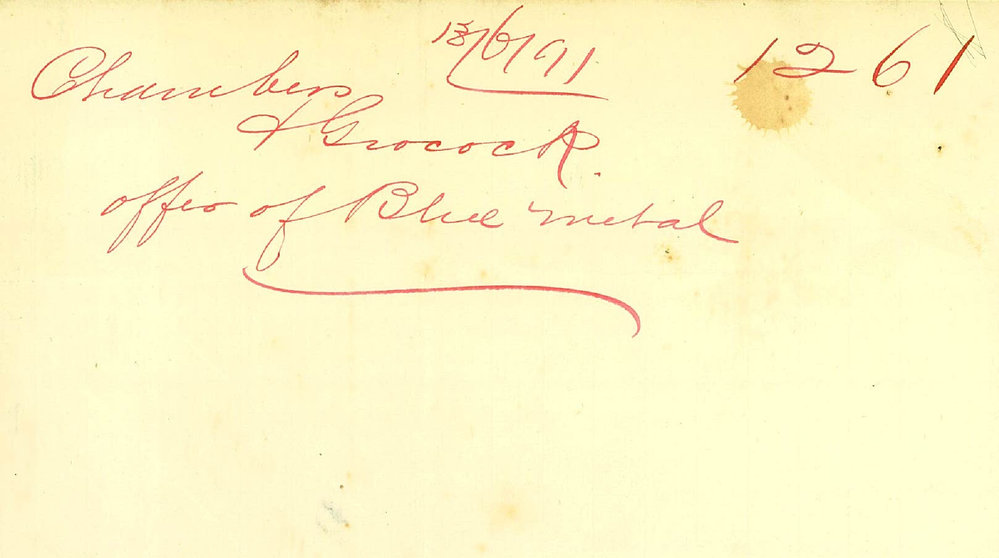 13/6/91
1261
Chambers
& Grocock.
offer of Blue metal